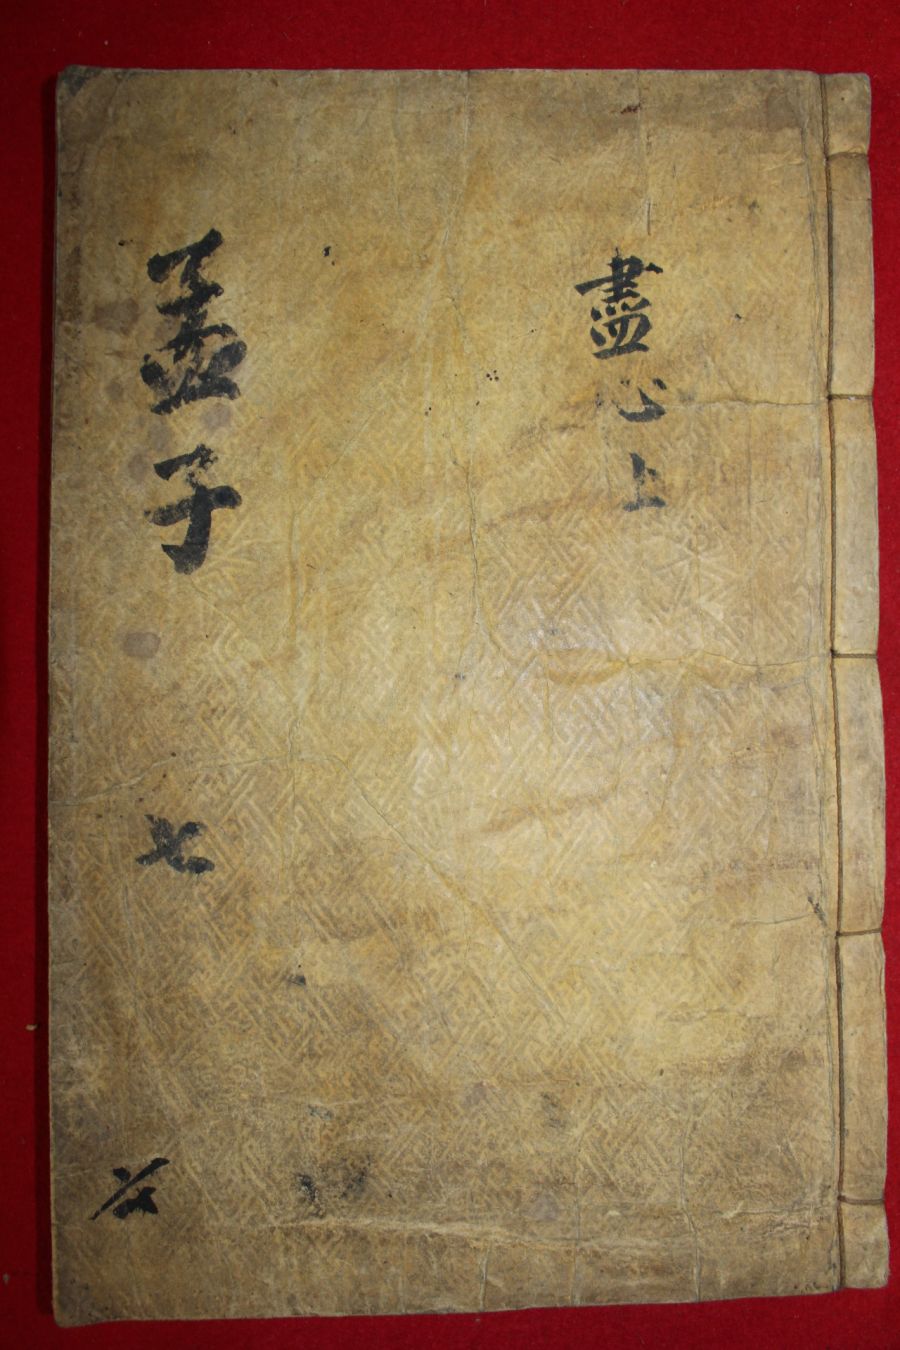 盡心上
孟子
七